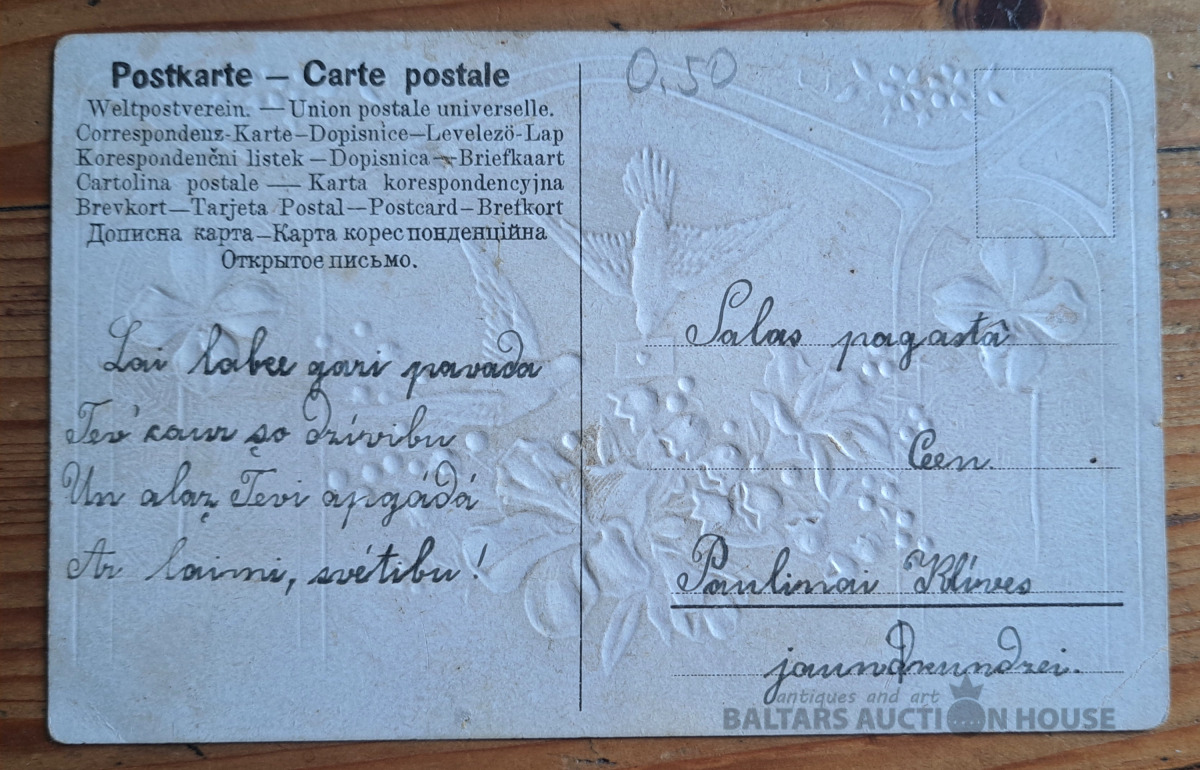 Postkarte — Carte postale
Weltpostverein. — Union postale universelle.
Correspondenz-Karte—Dopisnice—Levelezö-Lap
Korespondenčni listek—Dopisnica—Briefkaart
Cartolina postale — Karta korespondencyjna
Brevkort—Tarjeta Postal—Postcard—Brefkort
Дописна карта—Карта кореспонденційна
Открытое письмо.
Lai labee gari pavada
Tev' caur şo dzívibu
Un alaz Tevi apgádá
Ar laimi, svétibu!
0.50
Salas pagastâ
Ceen.
Paulinai Klíves
jaundzundzei.
antiques and art
BALTARS AUCTION HOUSE